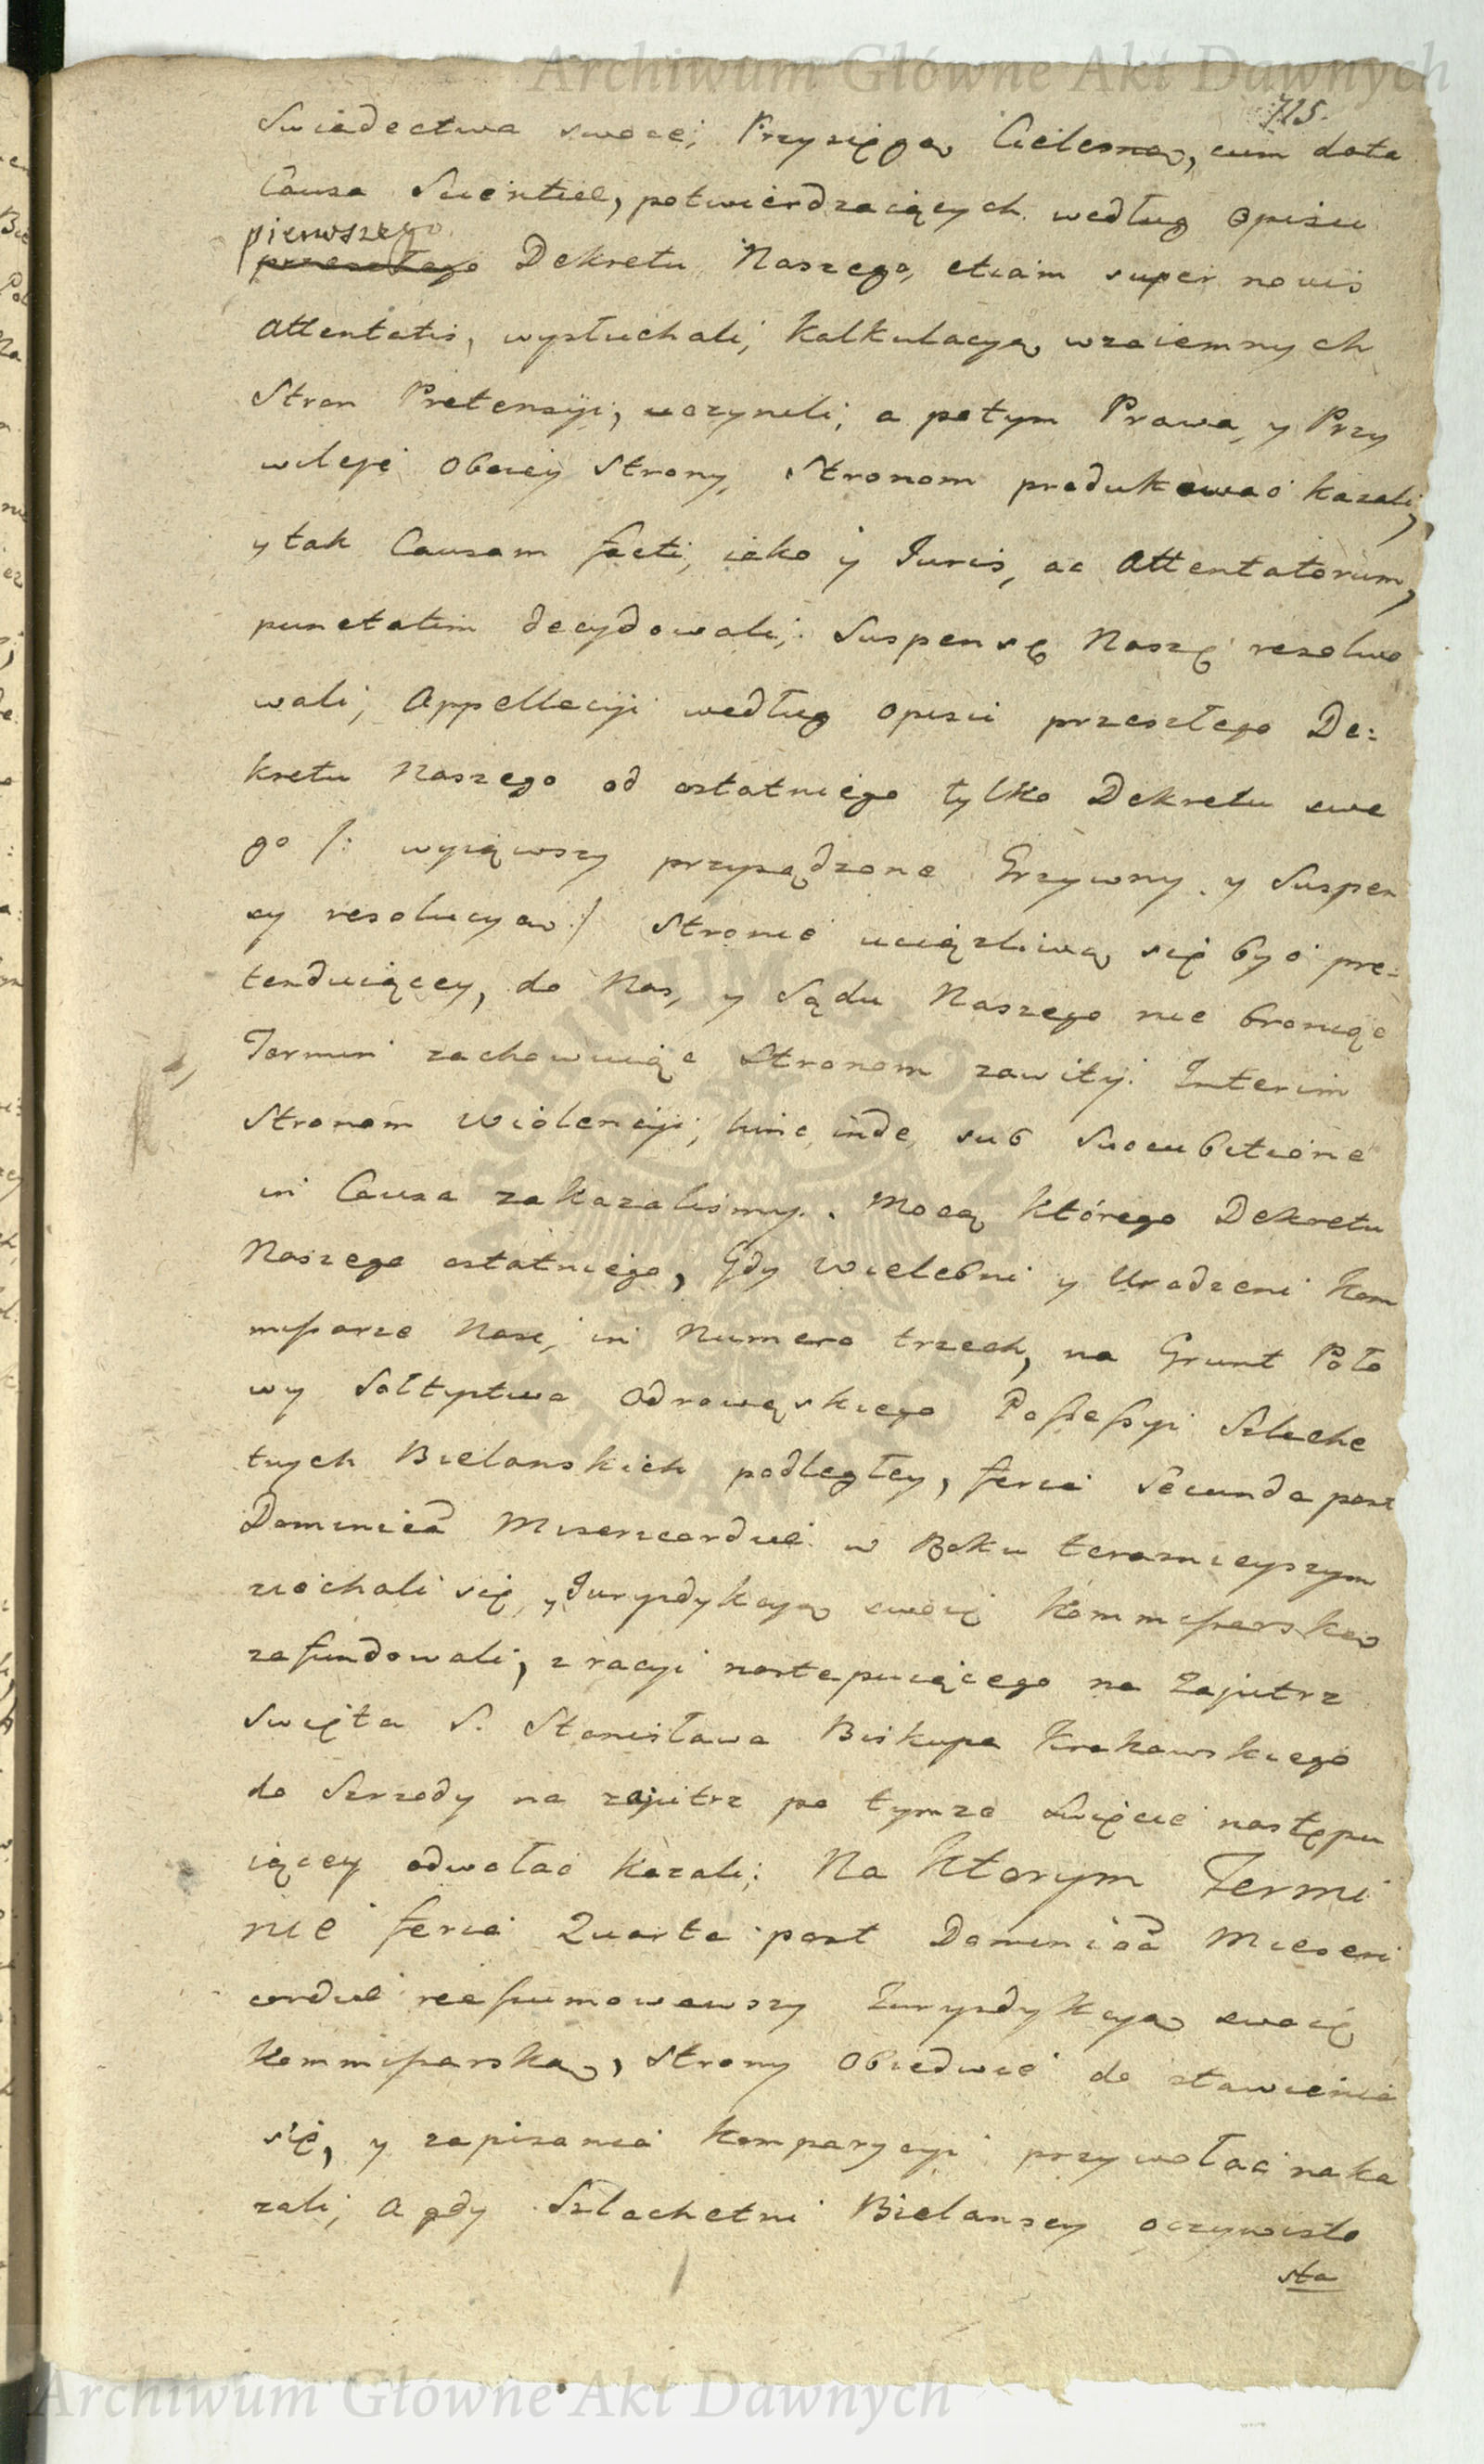 Archiwum Główne Akt Dawnych
715.
Swiadectwa swoie, Przysięgą Cielesną, cum data
Causa Scientiae, potwierdzaiących według opisu
pierwszego
przeszłego Dekretu Naszego, etiam super novis
Attentatis, wysłuchali, Kalkulacyą wzaiemnych
Stron Pretensyi, uczynili; a potym Prawa, y Przy
wileje oboiey Strony, Stronom produkować kazali,
y tak Causam facti, iako y Iuris, ac Attentatorum,
punctatim decydowali; Suspensę Naszę rezolwo
wali, Appellacyi według opisu przeszłego De:
kretu Naszego od ostatniego tylko Dekretu swe
go /: wyiąwszy przysądzone Grzywny y Suspen
sy resolucyą :/ Stronie uciążliwą się być pre:
tenduiącey, do Nas, y Sądu Naszego nie broniąc
Termin zachowuiąc Stronom zawity. Interim
Stronom Wiolencyi, hinc inde, sub Succubitione
in Causa zakazalismy. Mocą którego Dekretu
Naszego ostatniego, Gdy Wielebni y Urodzeni Kom
missarze Nasi, in Numero trzech, na Grunt Poło
wy Sołtystwa Odrowąskiego Possessyi Szlache
tnych Bielanskich podległey, feria Secunda post
Dominicã Misericordiae w Roku teraznieyszym
ziechali się, y Iurysdykcyą swoię Kommissarską
zafundowali, z racyi nastepuiącego na Zajutrz
Swięta S. Stanisława Biskupa Krakowskiego
do Szrzody na zajutrz po tymze Swięcie następu
iącey odwołać kazali; Na Ktorym Termi
nie feria Quarta post Dominicã Miseri
cordiae reassumowawszy Iurysdykcyą swoię
Kommissarską, Strony Obiedwie do stawienia
się, y zapisania Komparycyi przywołać naka
zali; A gdy Szlachetni Bielanscy oczywisto
sta
Archiwum Główne Akt Dawnych